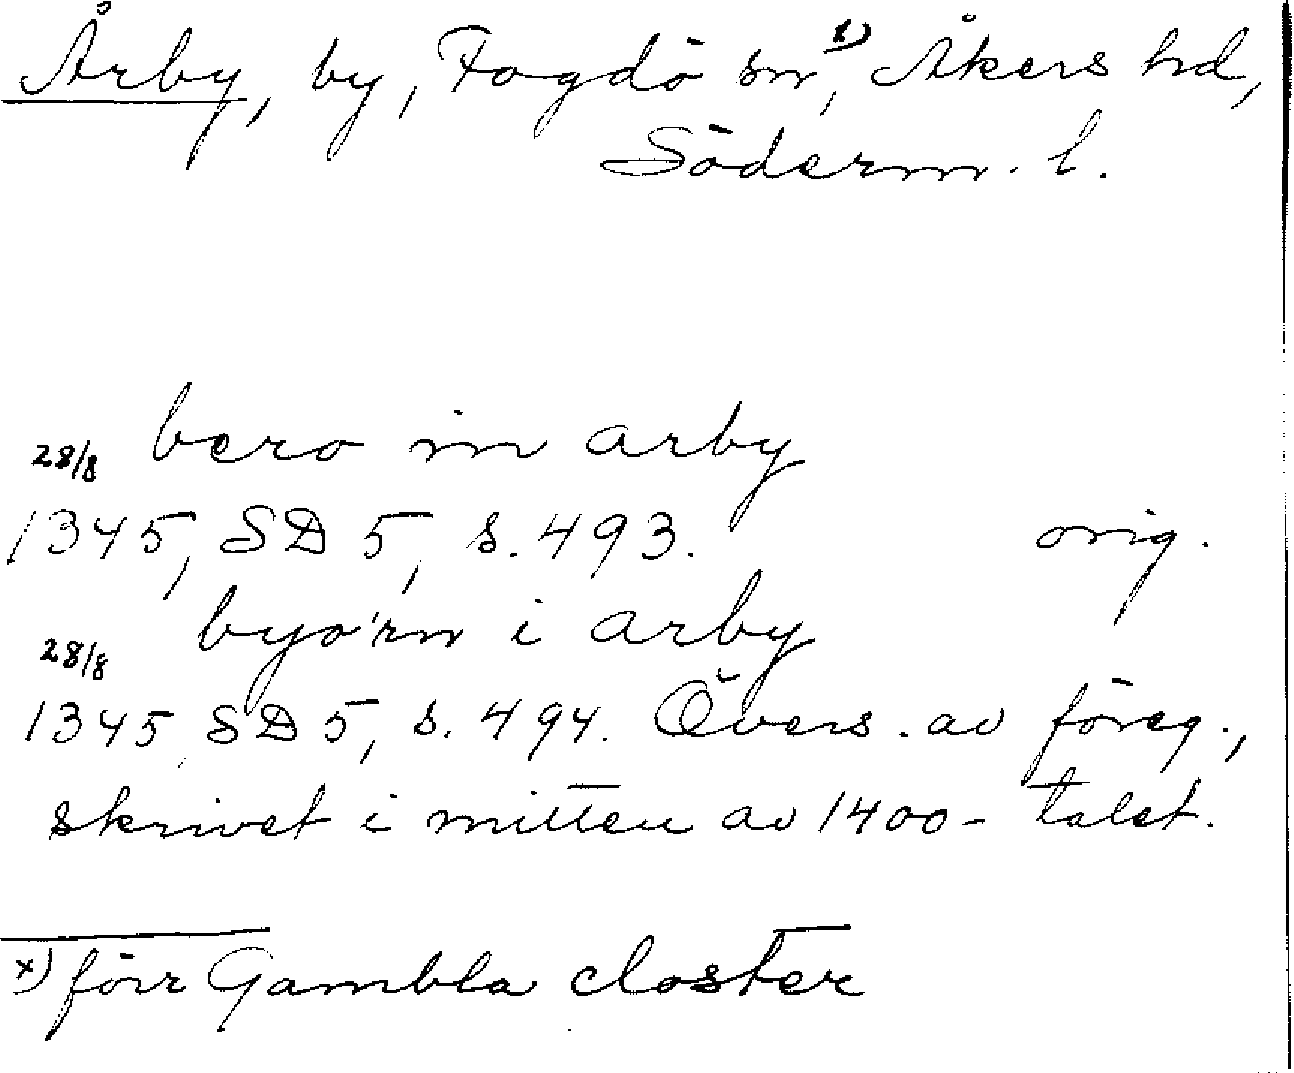 Årby, by, Fogdö sn,¹⁾ Åkers hd,
Söderm. l.
28/8 bero in arby
1345, SD 5, s. 493. orig.
28/8 byo'rn i arby
1345 SD 5, s. 494. Övers. av föreg.,
skrivet i mitten av 1400-talet.
x) förr Gambla closter